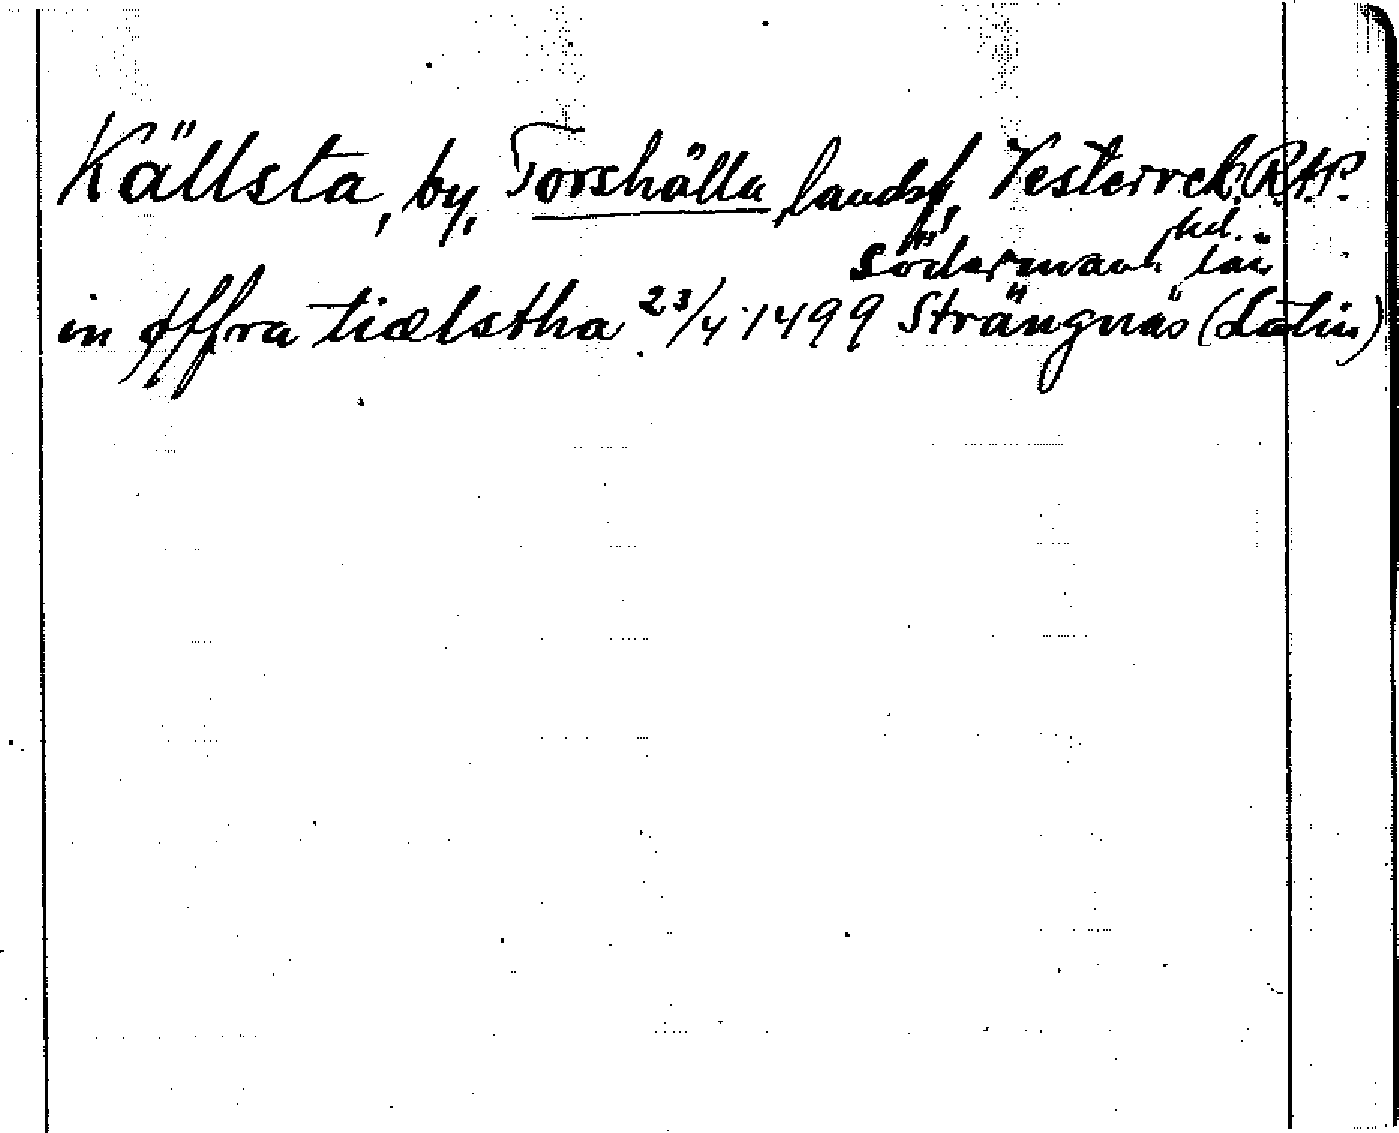 Källsta, by, Torshälla landsf, Vesterrek. RAP.
hd.
Södermanl. län
in øffra tiælstha 23/4 1499 Strängnäs (Latin)